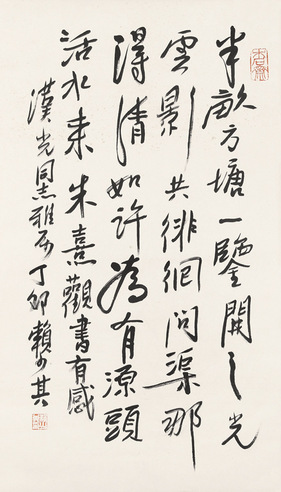 半畝方塘一鑒開天光
雲影共徘徊問渠那
得清如許為有源頭
活水來 朱熹觀書有感
漢光同志雅 丁卯賴少其